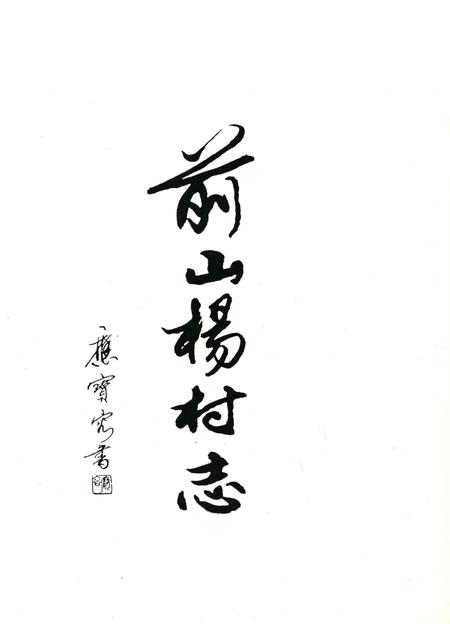 前山楊村志
應寶容書